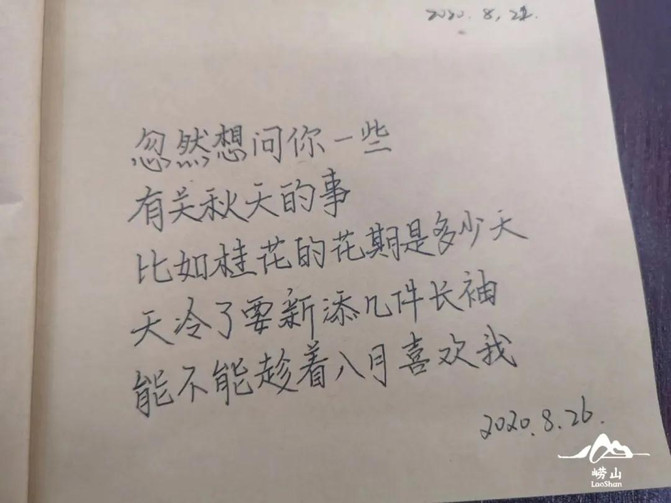 2020.8.22.
忽然想问你一些
有关秋天的事
比如桂花的花期是多少天
天冷了要新添几件长袖
能不能趁着八月喜欢我
2020.8.26.
崂山
LaoShan